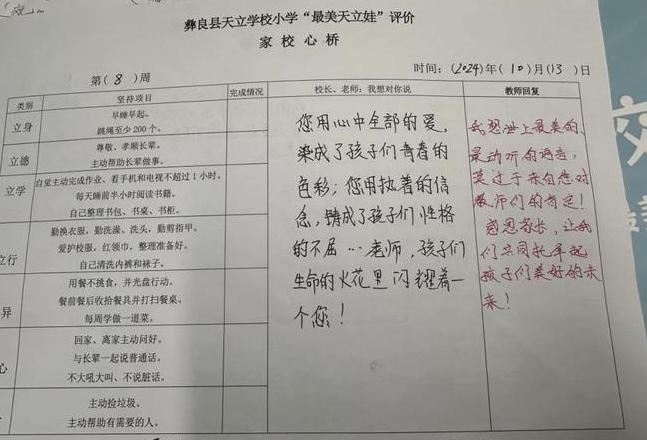 彝良县天立学校小学“最美天立娃”评价
家校心桥
第(8)周
时间：(2024)年(10)月(13)日
类别
坚持项目
完成情况
校长、老师：我想对你说
教师回复
立身
早睡早起。
跳绳至少200个。
立德
尊敬、孝顺长辈。
主动帮助长辈做事。
立学
自觉主动完成作业、看手机和电视不超过1小时。
每天睡前半小时阅读书籍。
自己整理书包、书桌、书柜。
立行
勤换衣服，勤洗澡、洗头，勤剪指甲。
爱护校服、红领巾，整理准备好。
自己清洗内裤和袜子。
异
用餐不挑食，并光盘行动。
餐前餐后收拾餐具并打扫餐桌。
每周学做一道菜。
心
回家、离家主动问好。
与长辈一起说普通话。
不大吼大叫、不说脏话。
主动捡垃圾。
主动帮助有需要的人。
您用心中全部的爱，
染成了孩子们青春的
色彩；您用执着的信
念，铸成了孩子们性格
的不屈…老师，孩子们
生命的火花里闪耀着一
个您！
我想世上最美的、
最动听的语言，
莫过于来自您对
教师们的肯定！
感恩家长，让我
们共同托举起
孩子们美好的未
来！